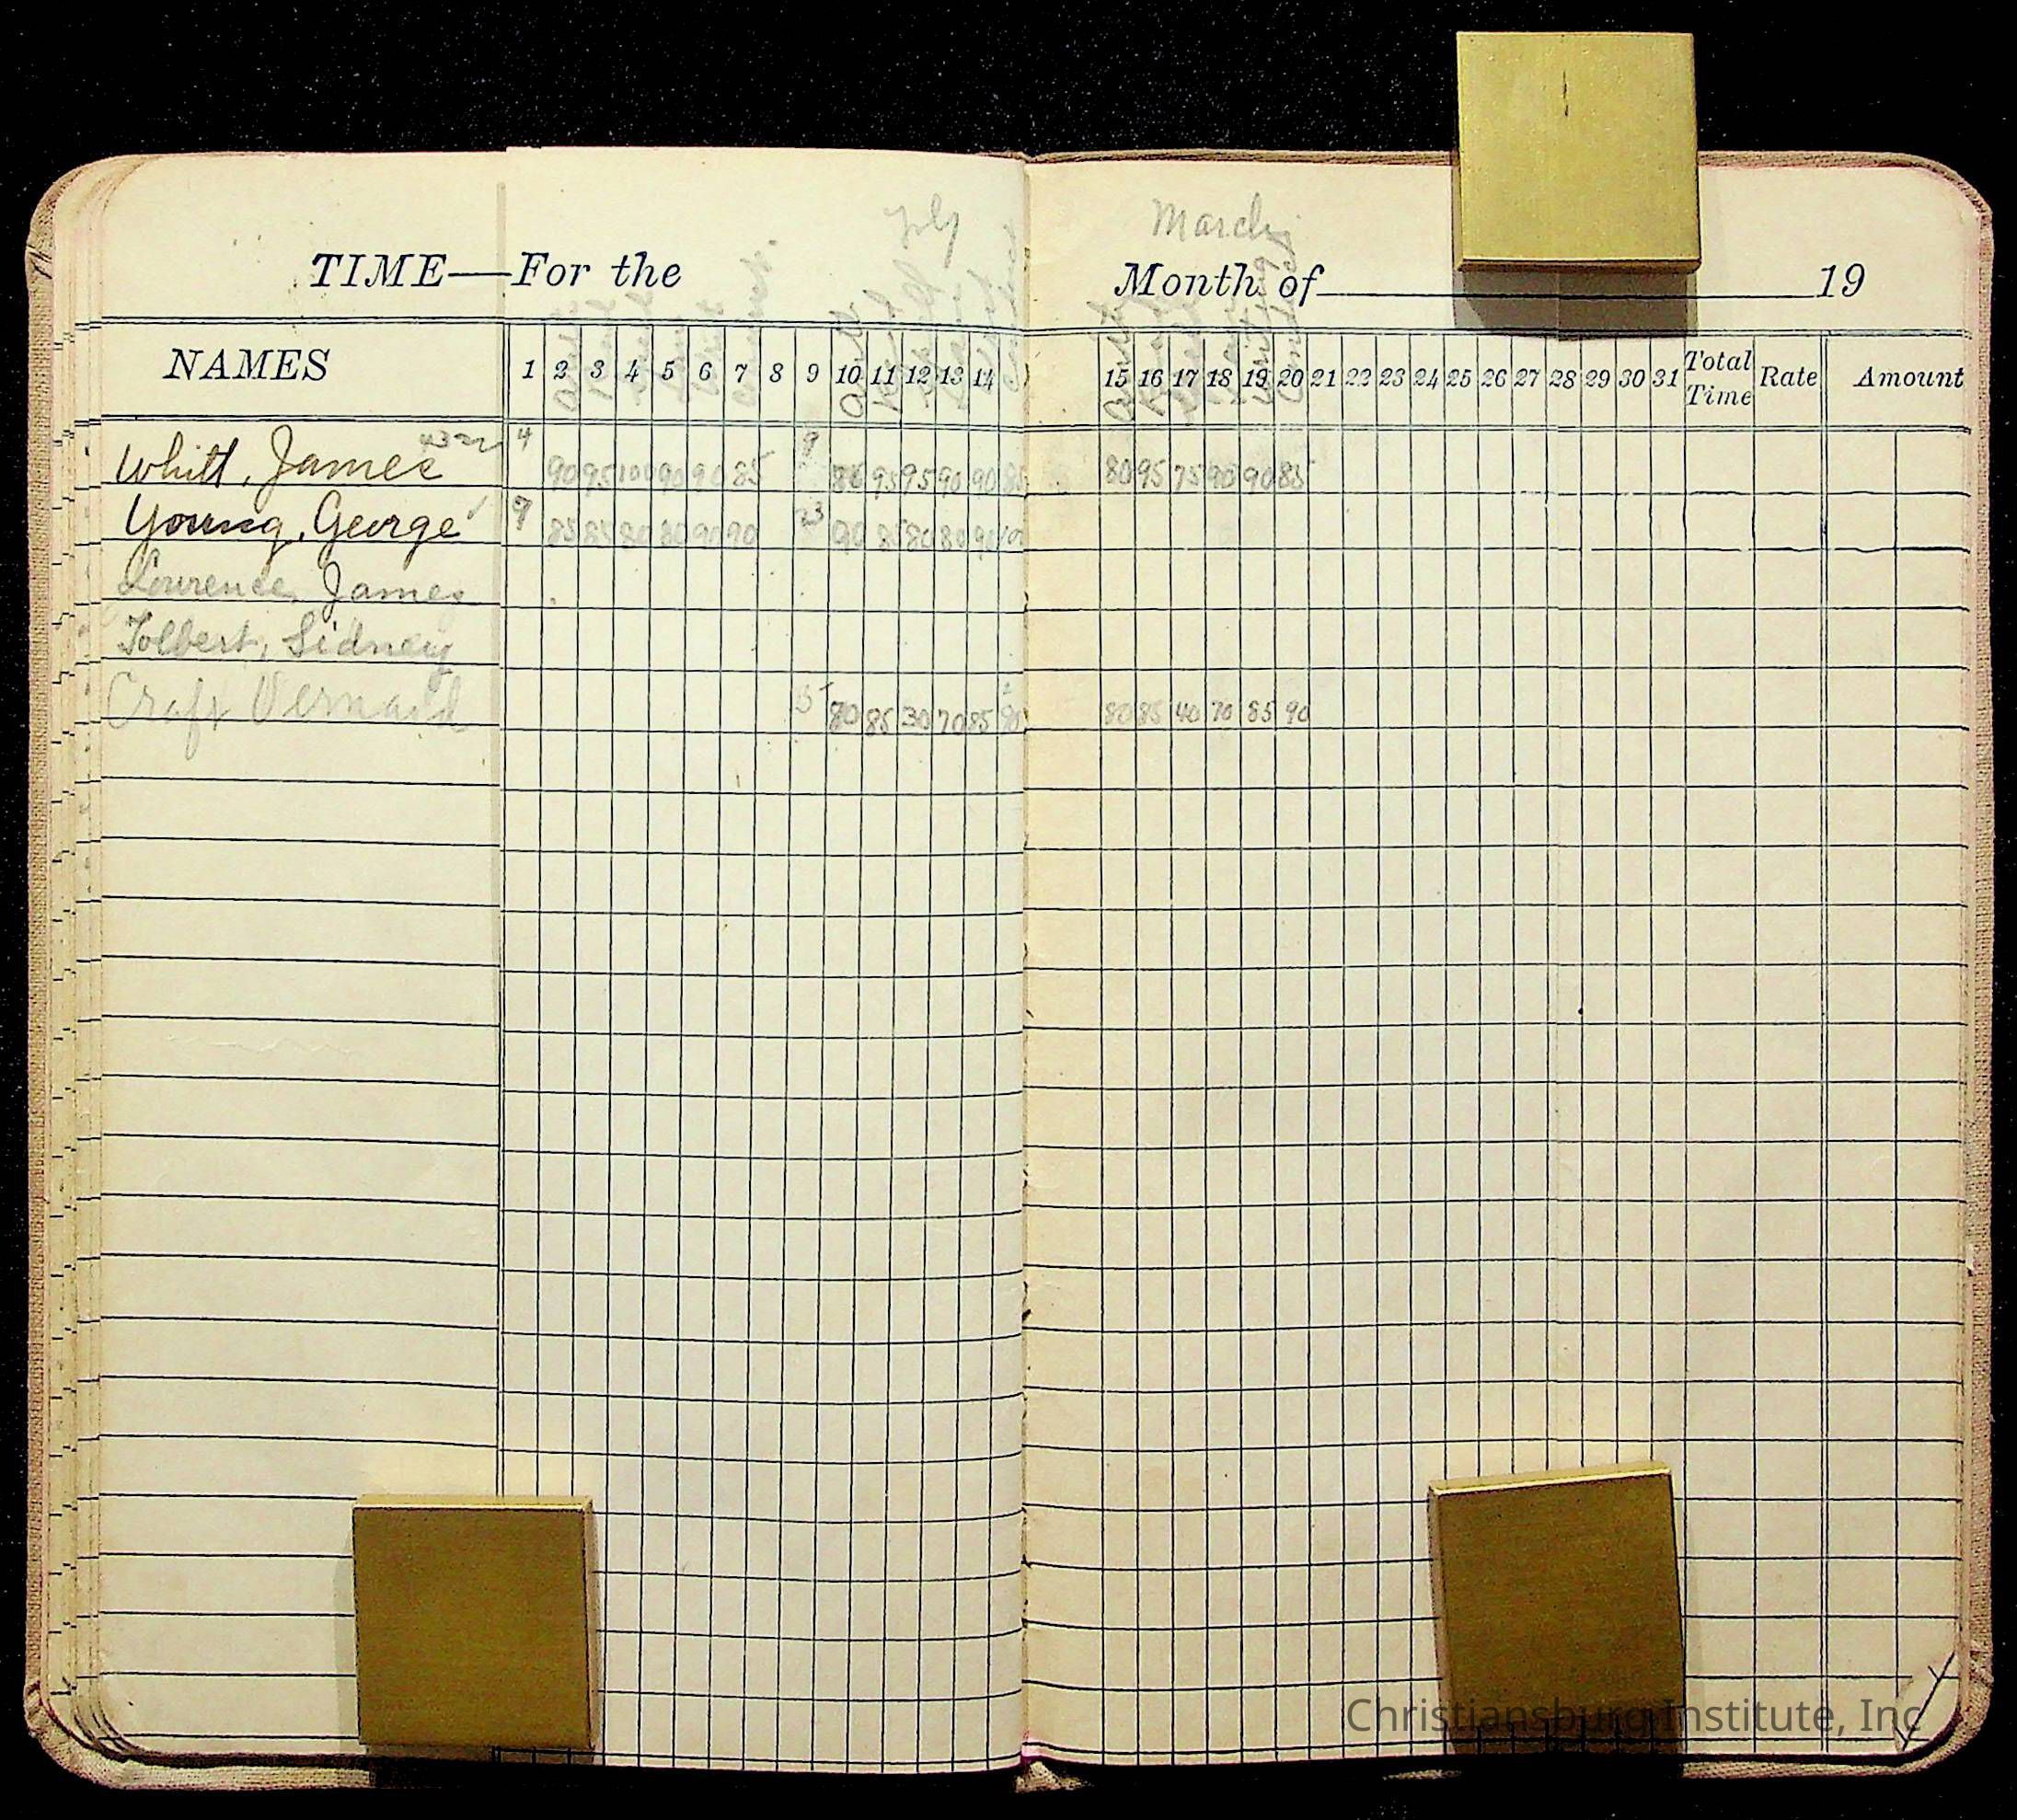 July
March
TIME—For the
Month of 19
NAMES 1 2 3 4 5 6 7 8 9 10 11 12 13 14 15 16 17 18 19 20 21 22 23 24 25 26 27 28 29 30 31 Total Time Rate Amount
Whitt, James 4 90 95 100 90 90 85 9 95 95 90 90 80 95 75 90 90 85
Young, George 9 85 85 80 80 90 90 23 90 85 80 80
Lourence, James
Tolbert, Sidney
Craft Vernard 5 80 85 30 70 85 90 80 85 40 70 85 90
Christiansburg Institute, Inc